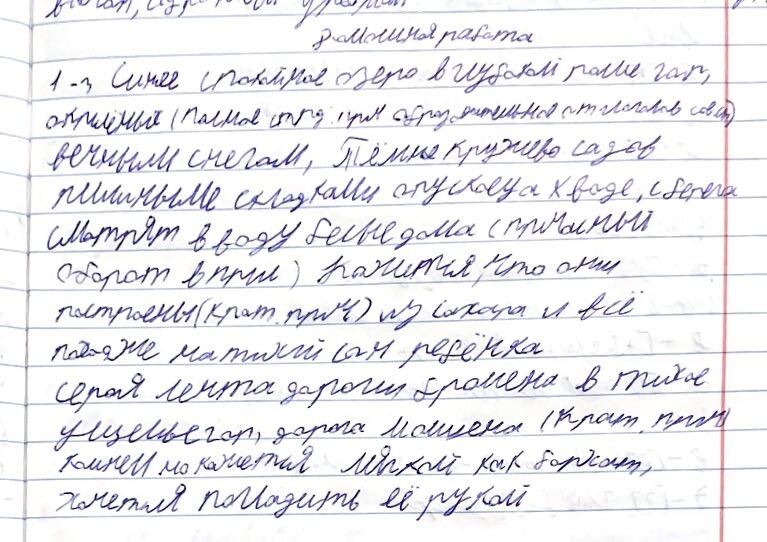 домашняя работа
1-3 Синее спокойное озеро в глубокой раме гор,
окрылёных (полное стрд. прич образовательное от глагола сов. в)
вечным снегом, Тёмное кружево садов
пышными складками опускаеца к воде, с берега
смотрят в воду белые дома (причасный
оборот в прич) кажится, что они
построены (крат. прич) из сахара и всё
похоже на тихий сон ребёнка
серая лента дороги брошена в тихое
ущелье гор, дорога мощена (крат. прич)
камнем но кажется мягкой как бархат,
хочется погладить её рукой